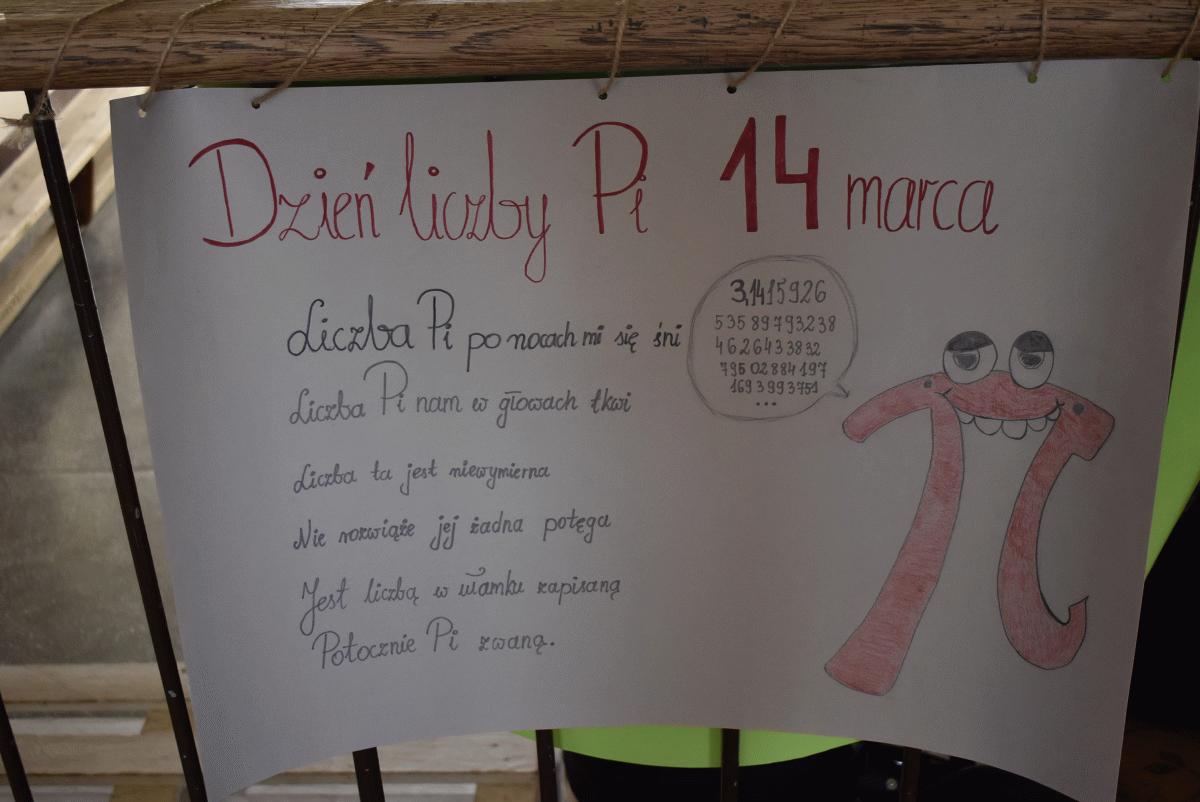 Dzień liczby Pi 14 marca
Liczba Pi po nocach mi się śni
Liczba Pi nam w głowach tkwi
Liczba ta jest niewymierna
Nie rozwiąże jej żadna potęga
Jest liczbą w ułamku zapisaną
Potocznie Pi zwaną.
3,1415926
535 89793238
4626433832
795 02884197
169 3993751
...